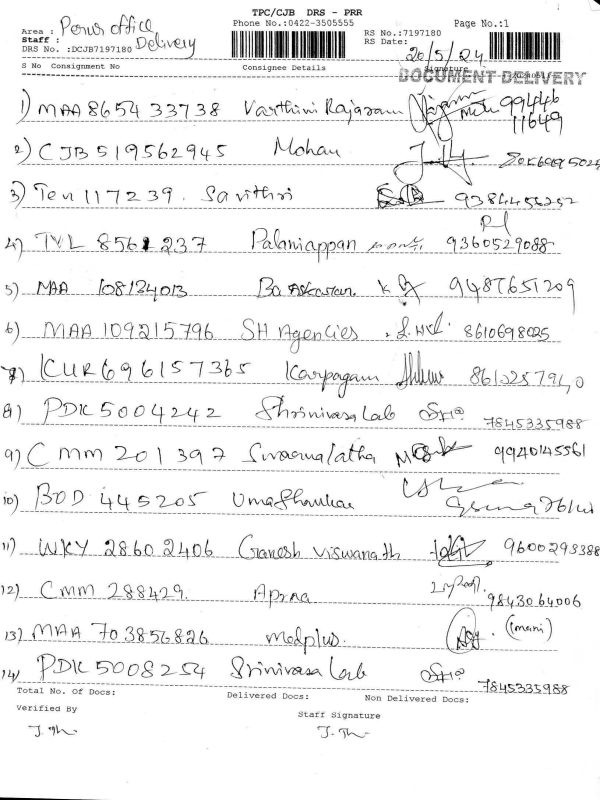 TPC/CJB DRS - PRR
Phone No.:0422-3505555 Page No.:1
Area : Perur office
Staff : Delivery
DRS No. :DCJB7197180
RS No.:7197180
RS Date: 20/5/24
S No Consignment No Consignee Details Signature
DOCUMENT DELIVERY
1) MAA 865433738 Varthini Rajaram 99446 11649
2) CJB 519562945 Mohan
3) Ten 117239. Savithri 9384456252
4) TVL 8561237 Palaniappan 9360529088
5) MAA 108124013 Baaskaran. K 9487651209
6) MAA 109215796 SH Agencies 8610698025
7) KUR 696157365 Karpagam
8) PDK 5004242 Shrinivasa Lab 7845335988
9) CMM 201397 Swarnalatha 9940145561
10) BOD 445205 Umashankar
11) WKY 28602406 Ganesh Viswanath 9600293388
12) CMM 288429. 9843064006
13) MAA 703856826 medplus. (mani)
14) PDK 5008254 Srinivasa Lab 7845335988
Total No. of Docs: Delivered Docs: Non Delivered Docs:
Verified By Staff Signature